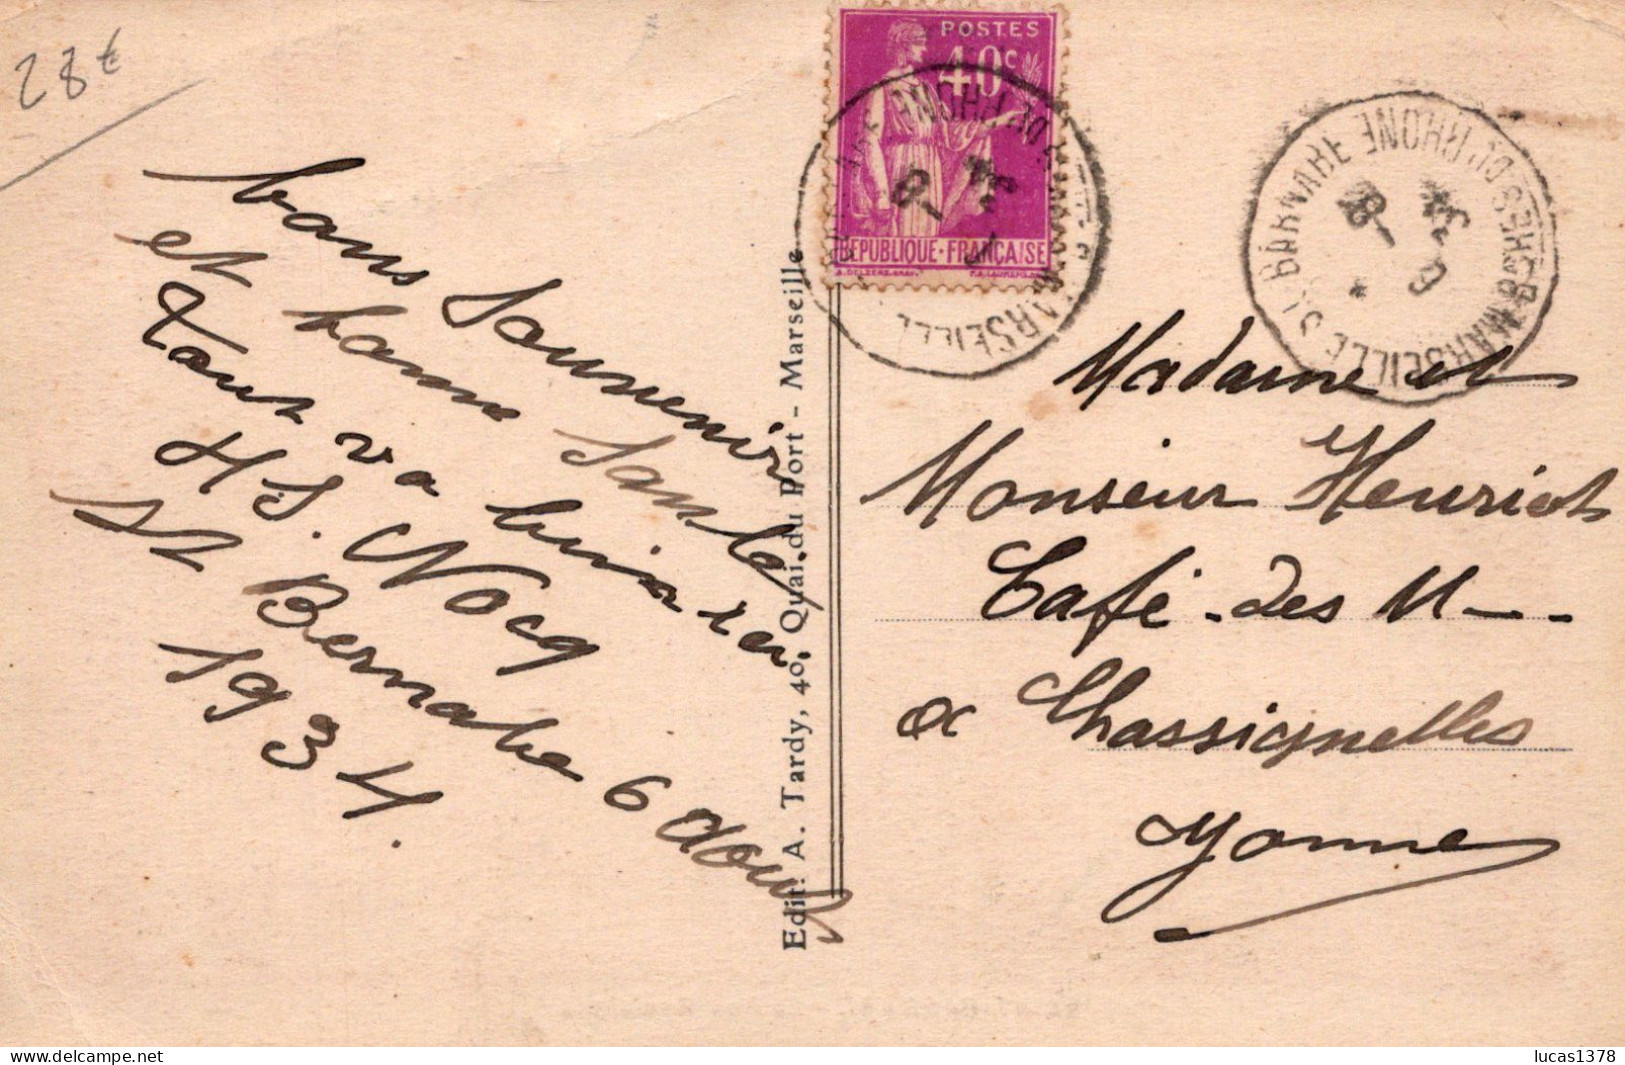 28 €
bons Souvenir
et bonne Santé
tout va bien ici
H S. Nocq
St Bernabe 6 Aout
1934.
Edit. A. Tardy, 40, Quai du Port - Marseille
POSTES
40c
REPUBLIQUE·FRANÇAISE
MARSEILLE ST BARNABE
BCHES DU RHONE
Madame et
Monsieur Henriot
Café des M--
a Chassignelles
Yonne
lucas1378